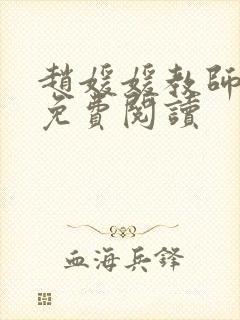 趙媛媛教師
免費閱讀
血海兵鋒